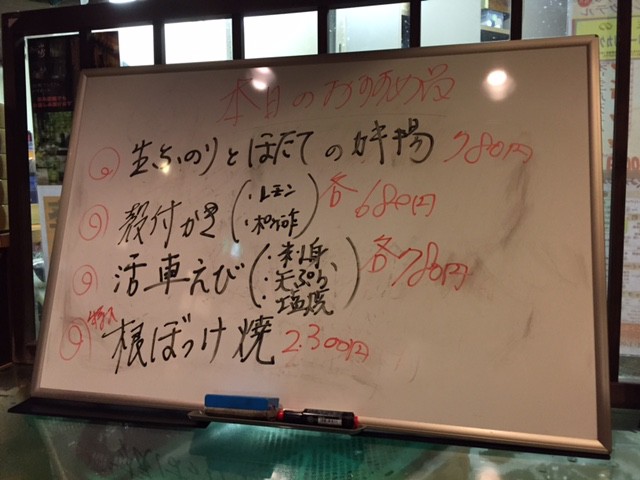 本日のおすすめ品
生のりとほたてのかき揚 780円
殻付かき (・レモン ・ポン酢) 各680円
活車えび (・刺身 ・天ぷら ・塩焼) 各780円
根ぼっけ焼 2,300円